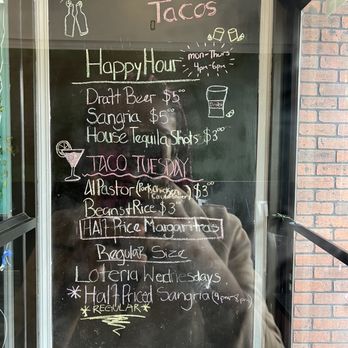 Tacos
Happy Hour
Mon-Thurs
4pm-6pm
Draft Beer $5⁰⁰
Sangria $5⁰⁰
House Tequila Shots $3⁰⁰
TACO TUESDAY
Al Pastor (Pork, Chicken $3⁰⁰
Beans & Rice $3⁰⁰
Half Price Margaritas
Regular Size
Loteria Wednesdays
*Half Priced Sangria (4pm-8pm)
*REGULAR*